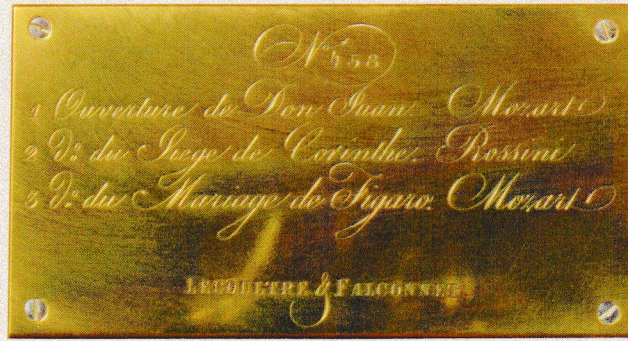 No. 458
1 Ouverture de Don Juan. Mozart
2 Do. du Siege de Corinthe. Rossini
3 Do. du Mariage de Figaro. Mozart
LECOULTRE & FALCONNET